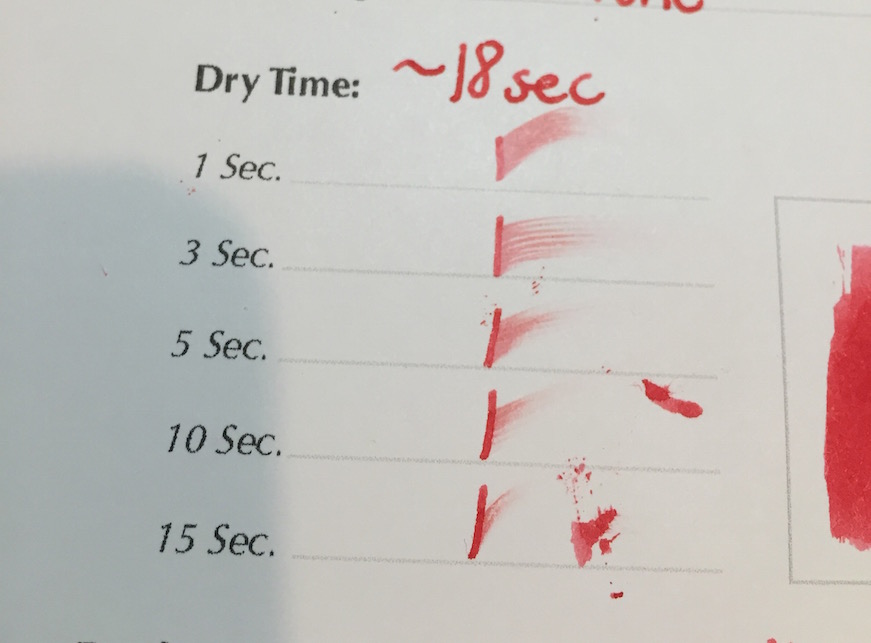 Dry Time: ~18 sec
1 Sec.
3 Sec.
5 Sec.
10 Sec.
15 Sec.